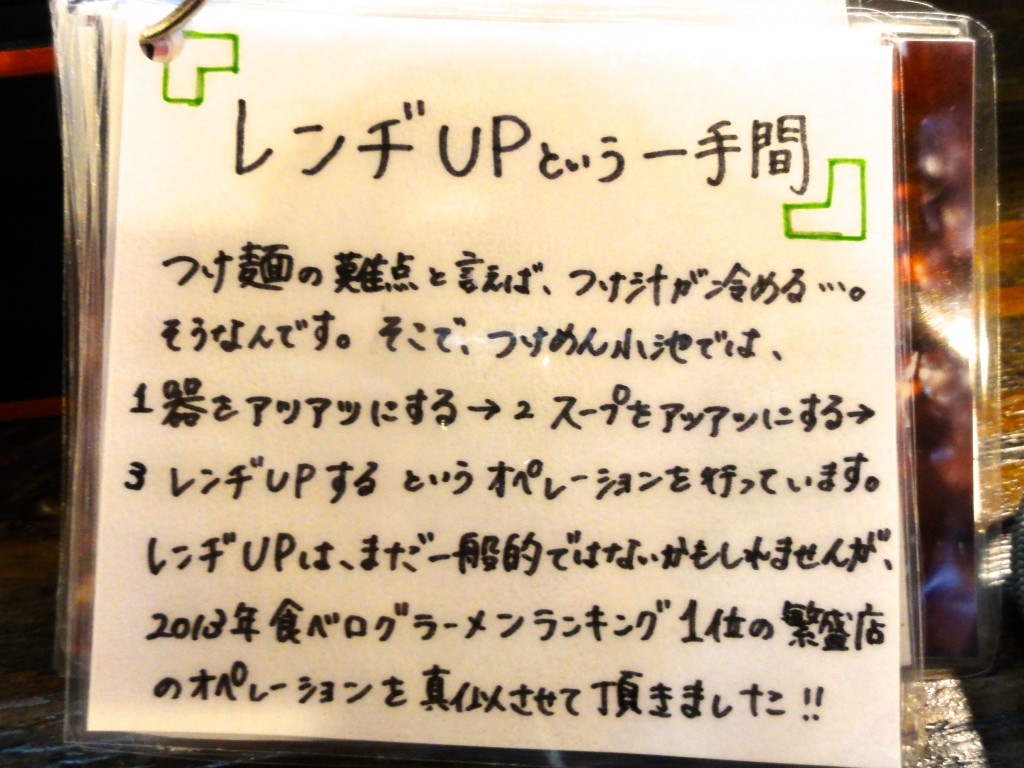 『レンヂUPという一手間』
つけ麺の難点と言えば、つけ汁が冷める…。
そうなんです。そこで、つけめん小池では、
1 器をアツアツにする→2 スープをアツアツにする→
3 レンヂUPする というオペレーションを行っています。
レンヂUPは、まだ一般的ではないかもしれませんが、
2013年食べログラーメンランキング1位の繁盛店
のオペレーションを真似させて頂きました!!